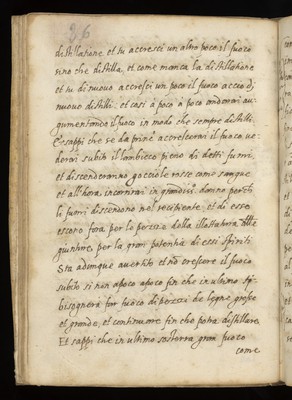 26
distillatione et tu accresci un altro poco il fuoco
sino che distilla, et come manca la distillatione
et tu di nuovo accresci un poco il fuoco accio di
nuovo distilli, et cosi à poco à poco andarai au-
gumentando il fuoco in modo che sempre distilli,
E sappi che se da prinº accrescerai il fuoco ve-
derai subito il lambicco pieno di detti fumi,
et discenderanno gocciole rosse come sangue
et all'hora incorrerai in grandissº danno perche
li fumi discendono nel recipiente et di esso
escono fora per le forze della illottatura delle
gionture, per la gran potentia di essi spiriti
Sta adonque avertito et nõ crescere il fuoco
subito si non apoco apoco fin che in ultimo ti
bisognerà far fuoco di pezzi de legne grosse
et grande, et continuare fin che potrà distillare,
Et sappi che in ultimo sosterrà gran fuoco
come